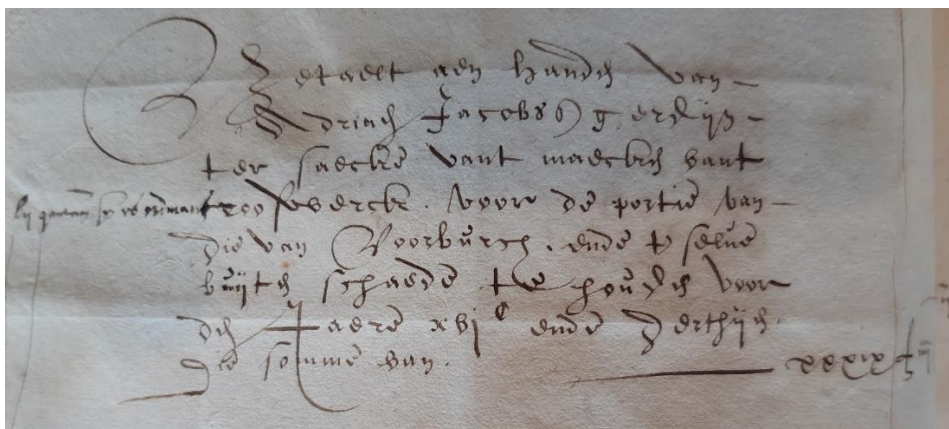 Betaelt aen handen van
Adriaen Jacobss gerdijn
ter saecke vant maecken vant
roo werck. voor de portie van
die van Voorburch. ende t selve
buijten schaede te houden voor
den Jaere xvi c ende derthijen
de somme van. xxxix